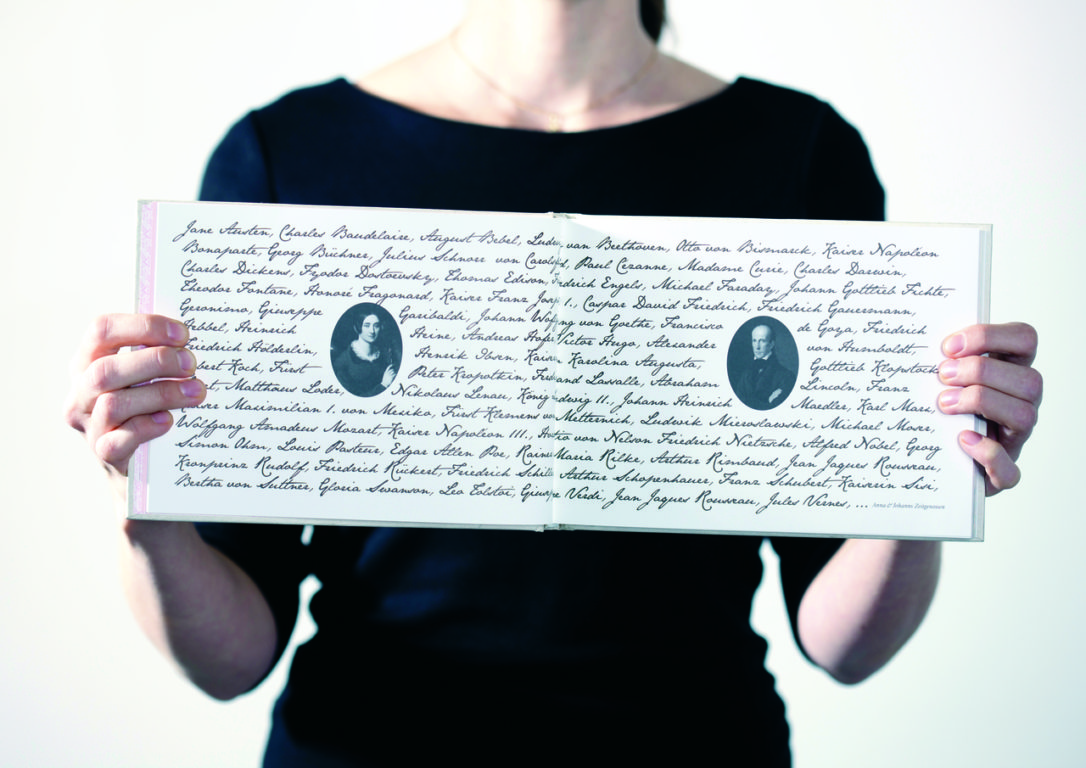 Jane Austen, Charles Baudelaire, August Bebel, Ludw. van Beethoven, Otto von Bismarck, Kaiser Napoléon
Bonaparte, Georg Büchner, Julius Schnorr von Carolsfd, Paul Cezanne, Madame Curie, Charles Darwin,
Charles Dickens, Fzodor Dostoevsky, Thomas Edison, Friedrich Engels, Michael Faraday, Johann Gottlieb Fichte,
Theodor Fontane, Honoré Fragonard, Kaiser Franz Josp 1., Caspar David Friedrich, Friedrich Gauermann,
Geronimo, Giuseppe Garibaldi, Johann Wolfng von Goethe, Francisco de Goza, Friedrich
Hebbel, Heinrich Heine, Andreas Hofer, Victor Hugo, Alexander von Humboldt,
Friedrich Hölderlin, Henrik Ibsen, Kaiser Karolina Augusta, Gottlieb Klopstock
bert Koch, Fürst Peter Kropotkin, Ferdinand Lassalle, Abraham Lincoln, Franz
t, Matthäus Loder, Nikolaus Lenau, König Ludwig II., Johann Heinrich Maedler, Karl Marx,
Kaiser Maximilian 1. von Mexiko, Fürst Klemens von Metternich, Ludwik Mieroslawski, Michael Moser,
Wolfgang Amadeus Mozart, Kaiser Napoléon III., von Nelson Friedrich Nietzsche, Alfred Nobel, Georg
Simon Ohm, Louis Pasteur, Edgar Allen Poe, Rain Maria Rilke, Arthur Rimbaud, Jean Jaques Rousseau,
Kronprinz Rudolf, Friedrich Rückert Friedrich Schille Arthur Schopenhauer, Franz Schubert, Kaiserin Sisi,
Bertha von Suttner, Gloria Swanson, Leo Tolstoi, Giuseppe Verdi, Jean Jaques Rousseau, Jules Vernes, ... Anna & Johanns Zeitgenossen